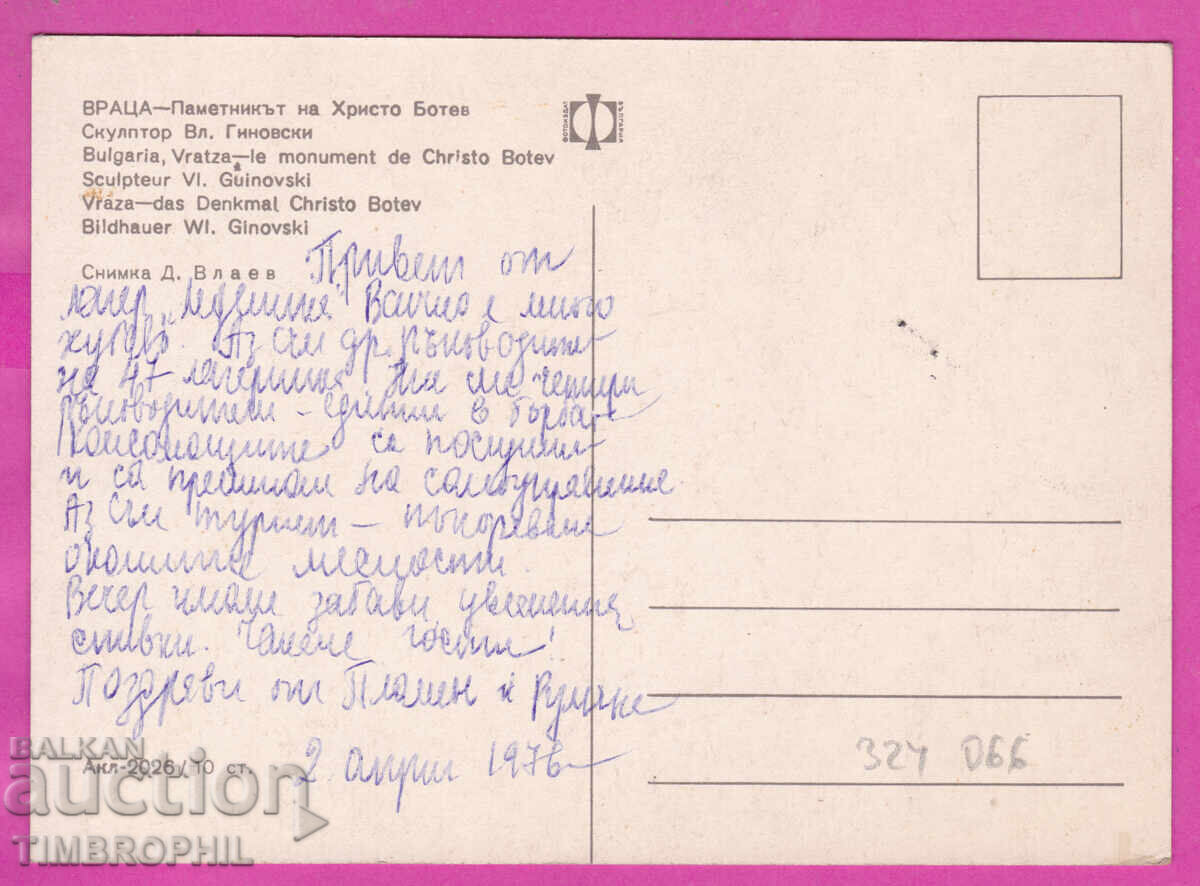 ВРАЦА—Паметникът на Христо Ботев
Скулптор Вл. Гиновски
Bulgaria, Vratza—le monument de Christo Botev
Sculpteur Vl. Guinovski
Vraza—das Denkmal Christo Botev
Bildhauer Wl. Ginovski
ФОТОИЗДАТ БЪЛГАРИЯ
Снимка Д. Влаев
Привет от
лагер Всичко е много
хубаво. Аз съм др. ръководител
на 47 лагеришка Ние сме четири
ръководители – единни в борбата
Комсомолците са послушни
и са преминали на самоуправление
Аз съм турист – покорявам
околните местности.
Вечер имаме забави увеселения,
спявки. Чакаме гости!
Поздрави от Пламен и Румяна
2 април 1976
Акл-2026/10 ст.
324 066
BALKAN
auction
TIMBROPHIL